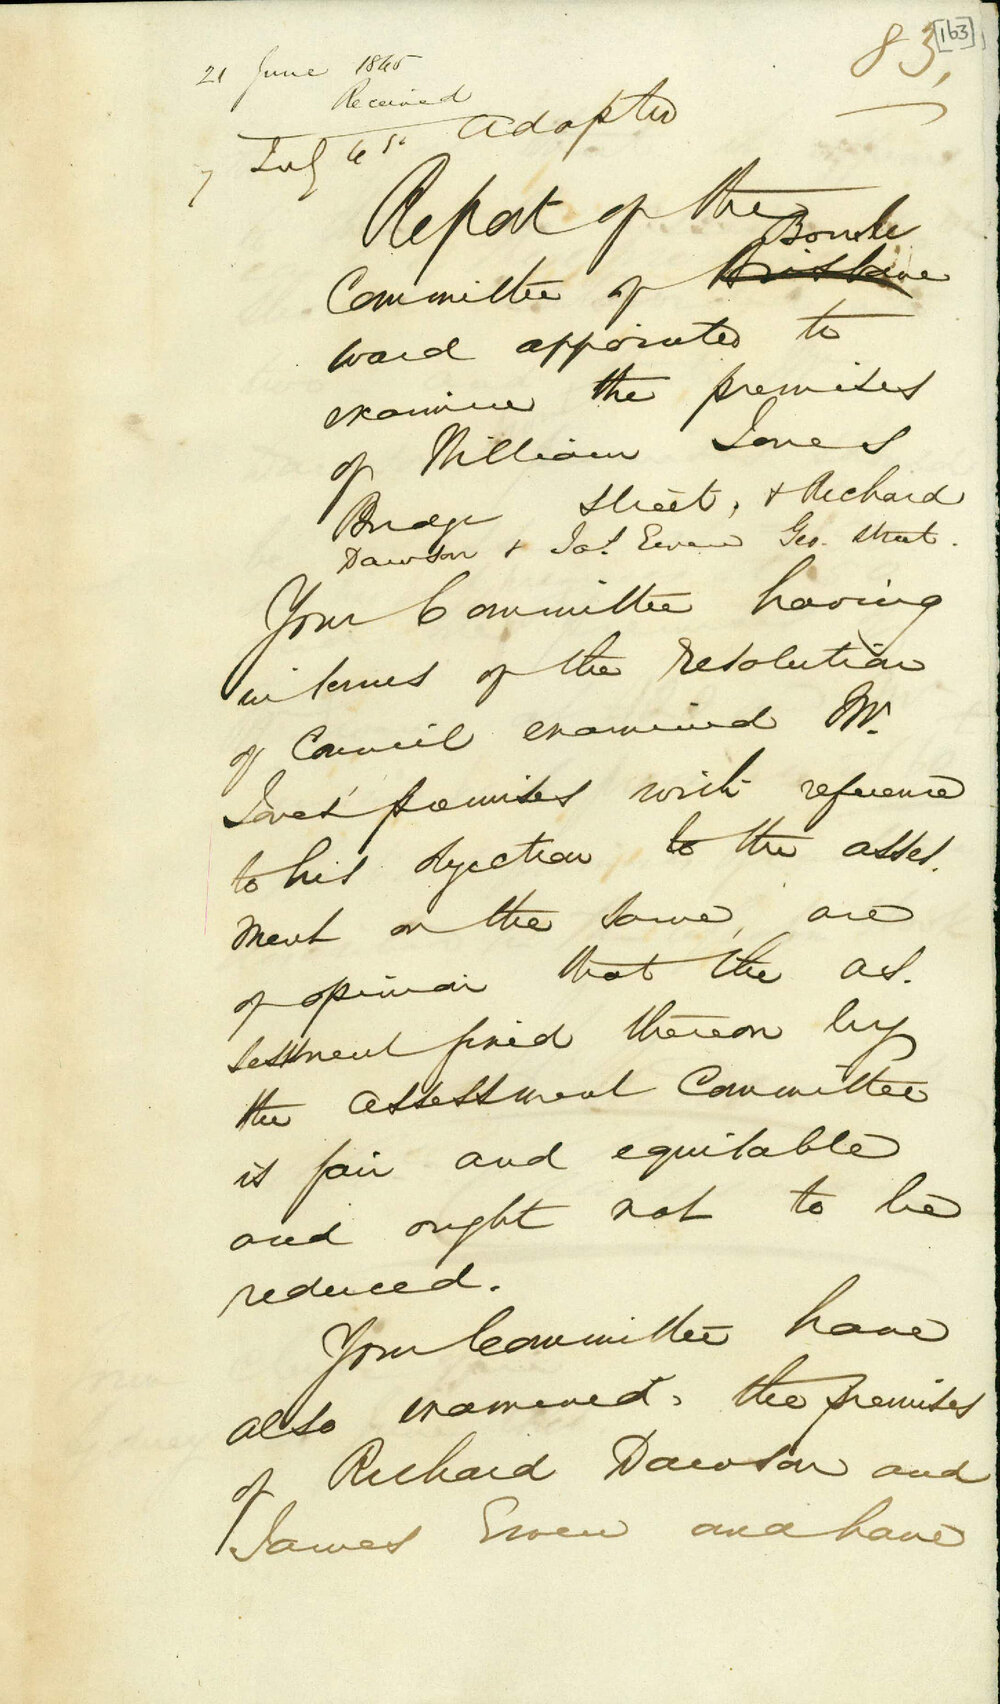 83,
[163]
21 June 1845
Received
7 July 45 Adopted
Report of the
Bourke
Committee of Brisbane
ward appointed to
examine the premises
of William Jones
Bridge Street, & Richard
Dawson & Jas. Ewen Geo. Street.
Your Committee having
in terms of the resolution
of Council examined Mr.
Jones' premises with reference
to his objection to the asses.
ment on the same, are
of opinion that the as.
sessment fixed thereon by
the Assessment Committee
is fair and equitable
and ought not to be
reduced.
Your Committee have
also examined, the premises
of Richard Dawson and
James Ewen and have